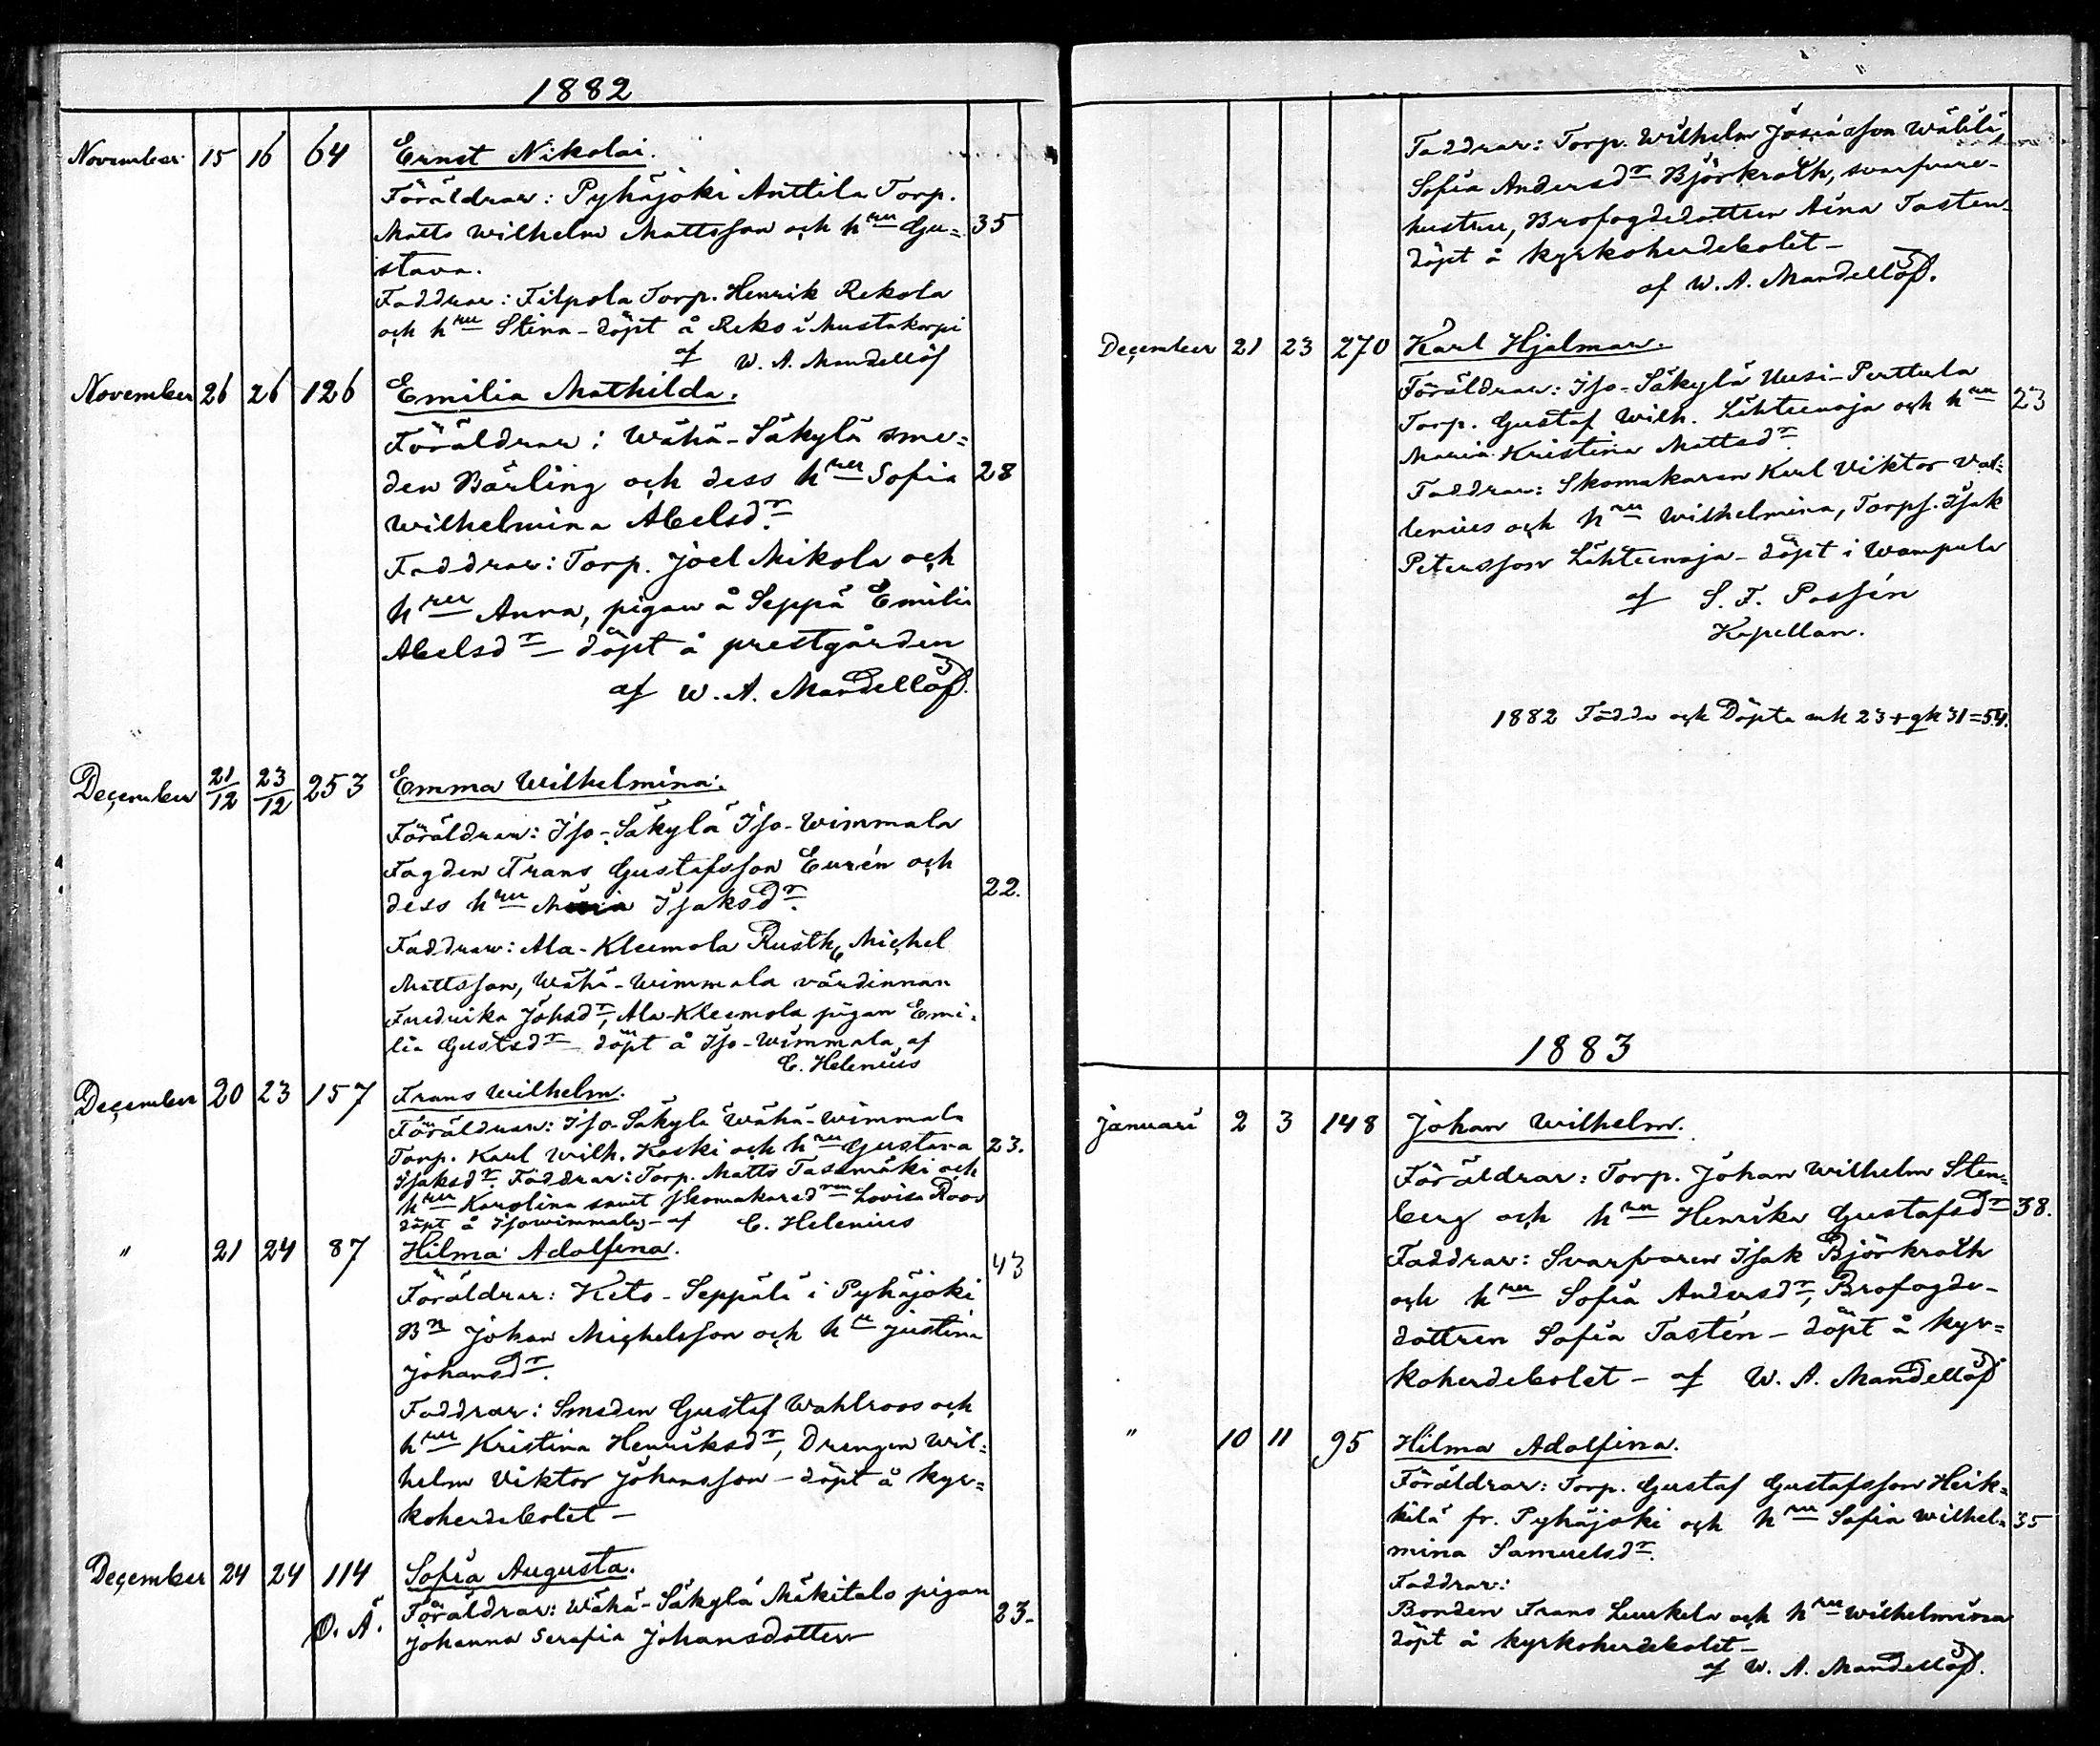 1882
November 15 16 64 Ernst Nikolai.
Föräldrar: Pyhäjoki Anttila Torp.
Matts Wilhelm Mattsson och hru Gu= 35
stava.
Faddrar: Filpola Torp. Henrik Rekola
och hru Stina - döpt å Reks i Mustakorpi
af W. A. Mandellöf
November 26 26 126 Emilia Mathilda.
Föräldrar: Wähä-Säkylä sme=
den Bärling och dess hru Sofia 28
Wilhelmina Abelsdr.
Faddrar: Torp. Joel Mikola och
hru Anna, pigan å Seppä Emilia
Abelsdr - döpt å prestgården
af W. A. Mandellöf.
December 21/12 23/12 253 Emma Wilhelmina.
Föräldrar: Iso-Säkylä Iso-Wimmala
Fogden Frans Gustafsson Eurén och
dess hru Maria Isaksdr. 22.
Faddrar: Ala-Kleemola Rusth. Michel
Mattsson, Wähä-Wimmala värdinnan
Fredrika Johsdr, Ala-Kleemola pigan Emi=
lia Gustsdr - döpt å Iso-Wimmala, af
C. Helenius
December 20 23 157 Frans Wilhelm.
Föräldrar: Iso-Säkylä Wähä-Wimmala
Torp. Karl Wilh. Koski och hru Gustava 23.
Isaksdr. Faddrar: Torp. Matts Tasamäki och
hru Karolina samt skomakared Lovisa Roos
döpt å Isowimmala - af C. Helenius
" 21 24 87 Hilma Adolfina. 43
Föräldrar: Keto-Seppälä i Pyhäjoki
Bn Johan Michelsson och hu Justina
Johansdr.
Faddrar: Smeden Gustaf Wahlroos och
hru Kristina Henriksdr, Drengen Wil=
helm Viktor Johansson - döpt å kyr=
koherdebolet -
December 24 24 114 Sofia Augusta.
O. Ä. Föräldrar: Wähä-Säkylä Mäkitalo pigan 23.
Johanna Serafia Johansdotter
Faddrar: Torp. Wilhelm Josiasson Wälilä,
Sofia Andersdr Björkroth, svarfvare-
hustru, Brofogdedottren Aina Tasten-
döpt å kyrkoherdebolet -
af W. A. Mandellöf.
December 21 23 270 Karl Hjalmar.
Föräldrar: Iso-Säkylä Uusi-Perttula
Torp. Gustaf Wilh. Lähteenoja och hru 23
Maria Kristina Mattsdr
Faddrar: Skomakaren Karl Viktor Val=
lenius och hru Wilhelmina, Torps. Isak
Petersson Lähteenoja - döpt i Wampula
af S. F. Passén
Kapellan.
1882 Födde och Döpte mk 23 + qk 31 = 54.
1883
Januari 2 3 148 Johan Wilhelm.
Föräldrar: Torp. Johan Wilhelm Sten=
berg och hru Henrika Gustafsdr 38.
Faddrar: Svarfvaren Isak Björkroth
och hru Sofia Andersdr, Brofogde-
dottren Sofia Tastén - döpt å kyr=
koherdebolet - af W. A. Mandellöf
" 10 11 95 Hilma Adolfina.
Föräldrar: Torp. Gustaf Gustafsson Heik=
kilä fr. Pyhäjoki och hru Sofia Wilhel= 35
mina Samuelsdr.
Faddrar:
Bonden Frans Luukela och hru Wilhelmina
döpt å kyrkoherdebolet -
af W. A. Mandellöf.